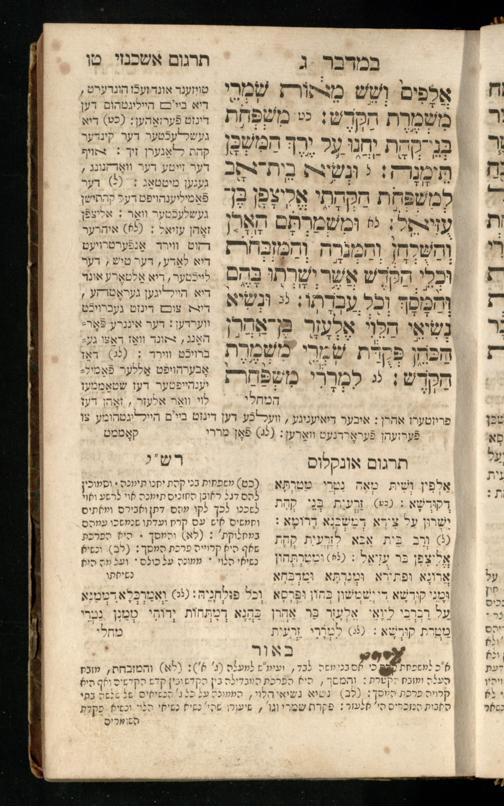 במדבר ג
תרגום אשכנזי טו
אֲלָפִים וְשֵׁשׁ מֵאוֹת שֹׁמְרֵי
מִשְׁמֶרֶת הַקֹּדֶשׁ: כט מִשְׁפְּחֹת
בְּנֵי־קְהָת יַחֲנוּ עַל יֶרֶךְ הַמִּשְׁכָּן
תֵּימָנָה: ל וּנְשִׂיא בֵית־אָב
לְמִשְׁפְּחֹת הַקְּהָתִי אֱלִיצָפָן בֶּן־
עֻזִּיאֵל: לא וּמִשְׁמַרְתָּם הָאָרֹן
וְהַשֻּׁלְחָן וְהַמְּנֹרָה וְהַמִּזְבְּחֹת
וּכְלֵי הַקֹּדֶשׁ אֲשֶׁר יְשָׁרְתוּ בָּהֶם
וְהַמָּסָךְ וְכֹל עֲבֹדָתוֹ: לב וּנְשִׂיא
נְשִׂיאֵי הַלֵּוִי אֶלְעָזָר בֶּן־אַהֲרֹן
הַכֹּהֵן פְּקֻדַּת שֹׁמְרֵי מִשְׁמֶרֶת
הַקֹּדֶשׁ: לג לִמְרָרִי מִשְׁפַּחַת
המחלי
טויזענד אונד זעכז הונדערט,
דיא בייא הייליגטהום דען
דינזט פֿעראהען: (כט) דיא
געשלעכטער דער קינדער
קהת לאגערן זיך: אויף
דער זייטע דער וואהנונג,
געגען מיטטאג: (ל) דער
פֿאמיליענהויפט דער קהתישן
געשלעכטער וואר: אליצפֿן
זאהן עזיאל: (לא) איהרער
הוט ווירד אנפֿערטרויעט
דיא לאדע, דער טיש, דער
לייכטער, דיא אלטארע אונד
דיא הייליגען געראטהע,
דיא צום דינזט געברויכט
ווערדען: דער איננרע פֿאר־
האנג, אונד וואז דאצו גע־
ברויכט ווירד: (לב) דאז
אבערהויפט אללער פֿאמיל־
יענהייפטער דעז שטאממעז
לוי וואר אלעזר, זאהן דעז
פריזטערז אהרן: איבער דיאיעניגע, וועלכע דען דינזט בייא הייליגטהומע צו
פֿערזעהן פֿעראָרדנעט ווארען: (לג) פֿאן מררי קאממט
תרגום אונקלוס
אלפין ושית מאה נטרי מטרתא
דקודשא: (כט) זרעית בני קהת
ישרון על צידא דמשכנא דרומא:
(ל) ורב בית אבא לזרעית קהת
אליצפן בר עזיאל: (לא) ומטרתהון
ארונא ופתורא ומנרתא ומדבחא
ומני קודשא די ישמשון בהון ופרסא
וכל פולחניה: (לב) ואמרכלא דממנא
על רברבי ליואי אלעזר בר אהרן
כהנא דמתחות ידוהי ממנן נטרי
מטרת קודשא: (לג) למררי זרעית
מחלי
רש"י
(כט) משפחות בני קהת יחנו תימנה. וסמוכין
להם דגל ראובן החונים תימנה אוי לרשע ואוי
לשכנו לכך לקו מהם דתן ואבירם ומאתים
וחמשים איש עם קרח ועדתו שנמשכו עמהם
במחלוקת: (לא) והמסך. היא הפרכת
שאף היא קרויה פרכת המסך: (לב) ונשיא
נשיאי הלוי. ממונה על כולם. ועל מה היא
נשיאתו
באור
א"כ למשפחת כי אם בני משה לבד, ועיימ"ש למעלה (ג' א'): (לא) והמזבחת, מזבח
העלה ומזבח הקטרת: והמסך, היא הפרכת המבדילה בין הקדש ובין קדש הקדשים ואף היא
קרויה פרכת המסך: (לב) נשיא נשיאי הלוי, הממונה על כל ג' הנשיאים של שלשה בתי
האבות הנזכרים הי' אלעזר: פקדת שמרי וגו', שיעורו שהי' נשיא נשיאי הלוי ונשיא פקדת
השומרים